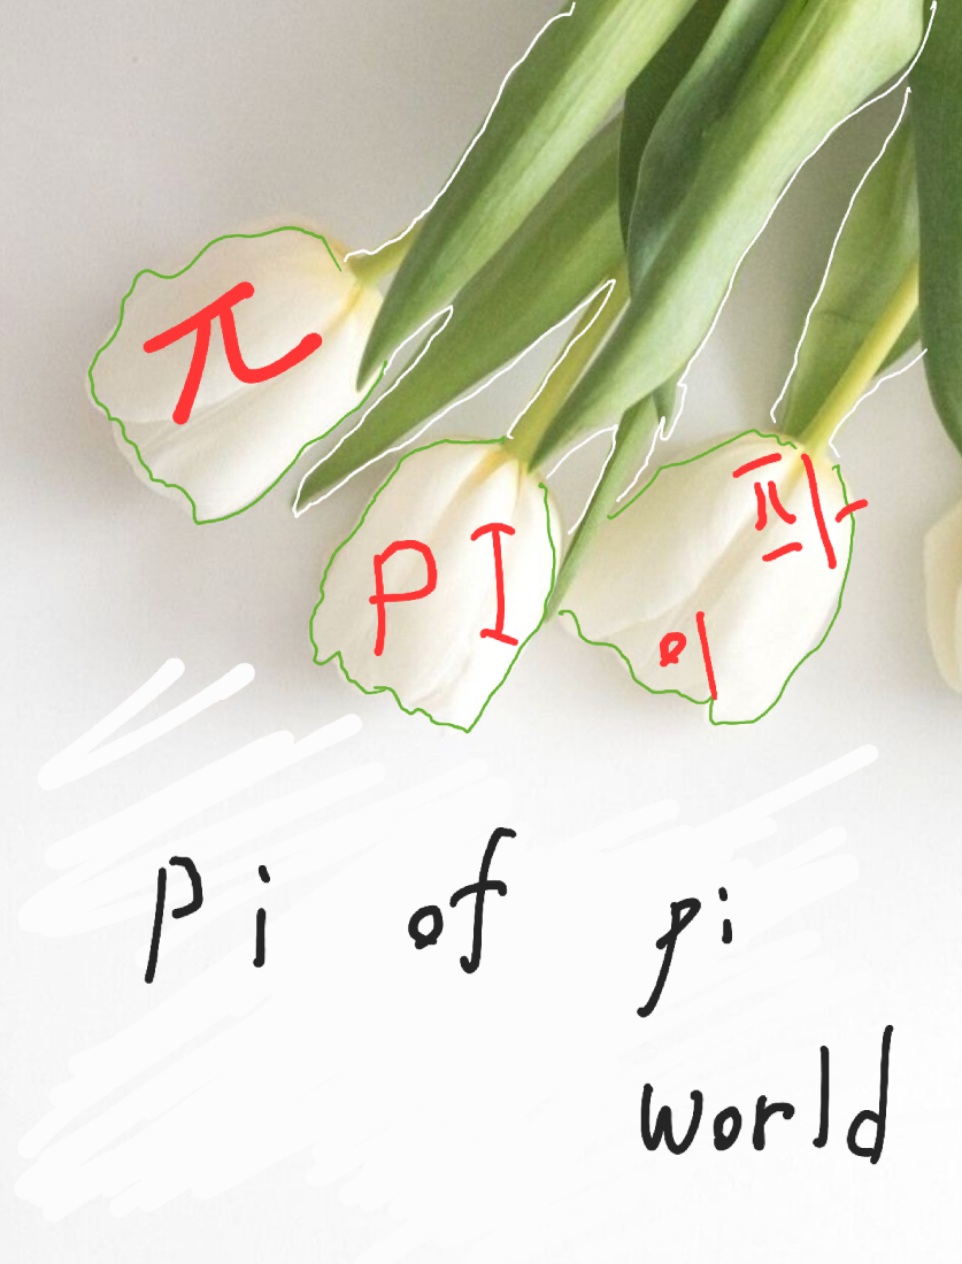 π
PI
파
이
Pi of pi
world